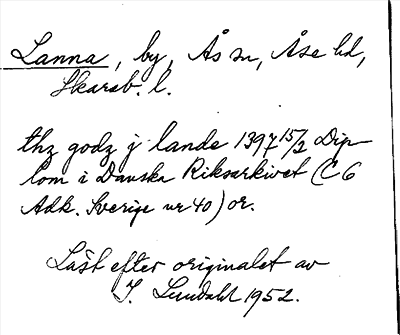 Lanna, by, Ås sn, Åse hd,
Skarab. l.
thz godz j lande 1397 15/2 Dip-
lom i Danska Riksarkivet (C 6
Adk. Sverige nr 40) or.
Läst efter originalet av
I. Lundahl 1952.